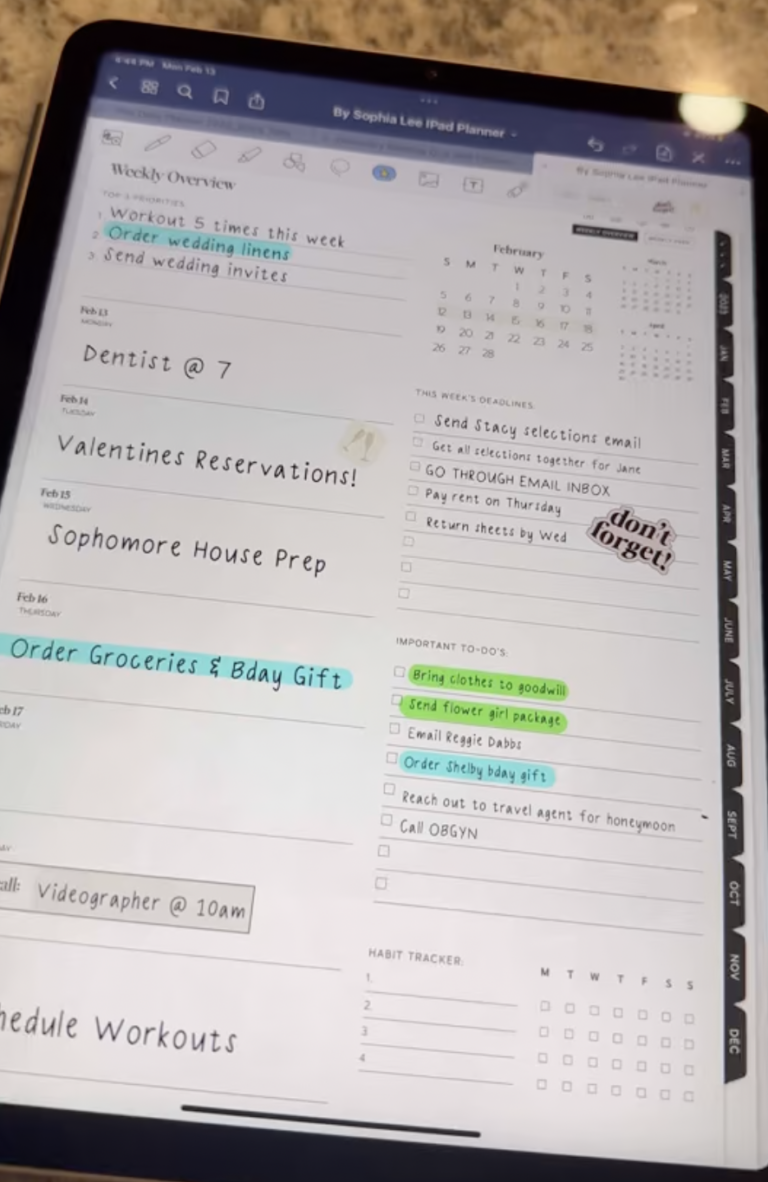 Mon Feb 13
By Sophia Lee iPad Planner
By Sophia Lee iPad Planner
Weekly Overview
TOP 3 PRIORITIES
1 Workout 5 times this week
2 Order wedding linens
3 Send wedding invites
WEEKLY OVERVIEW
February
S M T W T F S
1 2 3 4
5 6 7 8 9 10 11
12 13 14 15 16 17 18
19 20 21 22 23 24 25
26 27 28
March
April
Feb 13
MONDAY
Dentist @ 7
Feb 14
TUESDAY
Valentines Reservations!
Feb 15
WEDNESDAY
Sophomore House Prep
Feb 16
THURSDAY
Order Groceries & Bday Gift
eb 17
IDAY
AY
all: Videographer @ 10am
hedule Workouts
THIS WEEK'S DEADLINES:
Send Stacy selections email
Get all selections together for Jane
GO THROUGH EMAIL INBOX
Pay rent on Thursday
Return sheets by Wed
don't
forget!
IMPORTANT TO-DO'S:
Bring clothes to goodwill
Send flower girl package
Email Reggie Dabbs
Order Shelby bday gift
Reach out to travel agent for honeymoon
Call OBGYN
HABIT TRACKER:
M T W T F S S
1.
2
3
4
2023
JAN
FEB
MAR
APR
MAY
JUNE
JULY
AUG
SEPT
OCT
NOV
DEC